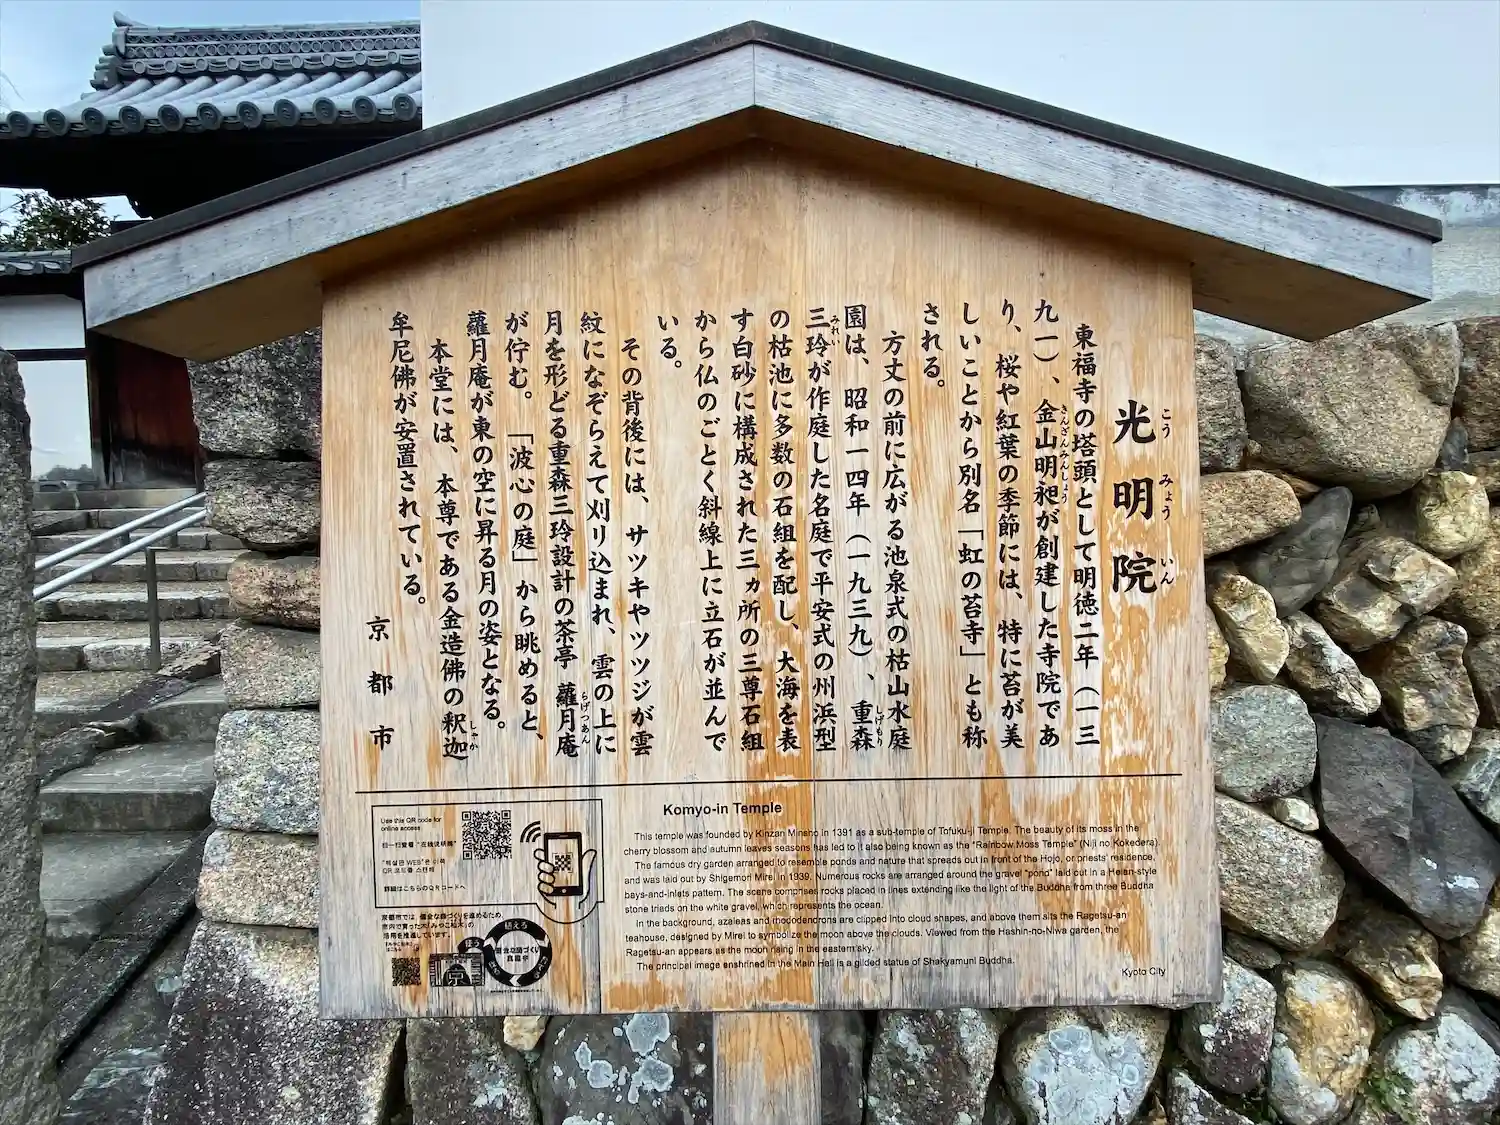 光明院
こう みょう いん
東福寺の塔頭として明徳二年（一三
九一）、金山明昶が創建した寺院であ
きんざんみんしょう
り、桜や紅葉の季節には、特に苔が美
しいことから別名「虹の苔寺」とも称
される。
方丈の前に広がる池泉式の枯山水庭
園は、昭和一四年（一九三九）、重森
しげもり
三玲が作庭した名庭で平安式の州浜型
みれい
の枯池に多数の石組を配し、大海を表
す白砂に構成された三ヵ所の三尊石組
から仏のごとく斜線上に立石が並んで
いる。
その背後には、サツキやツツジが雲
紋になぞらえて刈り込まれ、雲の上に
月を形どる重森三玲設計の茶亭 蘿月庵
らげつあん
が佇む。「波心の庭」から眺めると、
蘿月庵が東の空に昇る月の姿となる。
本堂には、本尊である金造佛の釈迦
しゃか
牟尼佛が安置されている。
京都市
Komyo-in Temple
This temple was founded by Kinzan Minsho in 1391 as a sub-temple of Tofuku-ji Temple. The beauty of its moss in the
cherry blossom and autumn leaves seasons has led to it also being known as the "Rainbow Moss Temple" (Niji no Kokedera).
The famous dry garden arranged to resemble ponds and nature that spreads out in front of the Hojo, or priests' residence,
and was laid out by Shigemori Mirei in 1939. Numerous rocks are arranged around the gravel "pond" laid out in a Heian-style
bays-and-inlets pattern. The scene comprises rocks placed in lines extending like the light of the Buddha from three Buddha
stone triads on the white gravel, which represents the ocean.
In the background, azaleas and rhododendrons are clipped into cloud shapes, and above them sits the Ragetsu-an
teahouse, designed by Mirei to symbolize the moon above the clouds. Viewed from the Hashin-no-Niwa garden, the
Ragetsu-an appears as the moon rising in the eastern sky.
The principal image enshrined in the Main Hall is a gilded statue of Shakyamuni Buddha.
Kyoto City
Use this QR code for
online access
扫一扫查看"在线说明牌"
"해설판 WEB"은 이쪽
QR 코드를 스캔해
詳細はこちらのQRコードへ
京都市では、健全な森づくりを進めるため、
市内で育った木「みやこ杣木」の
活用を推進しています。
植えろ